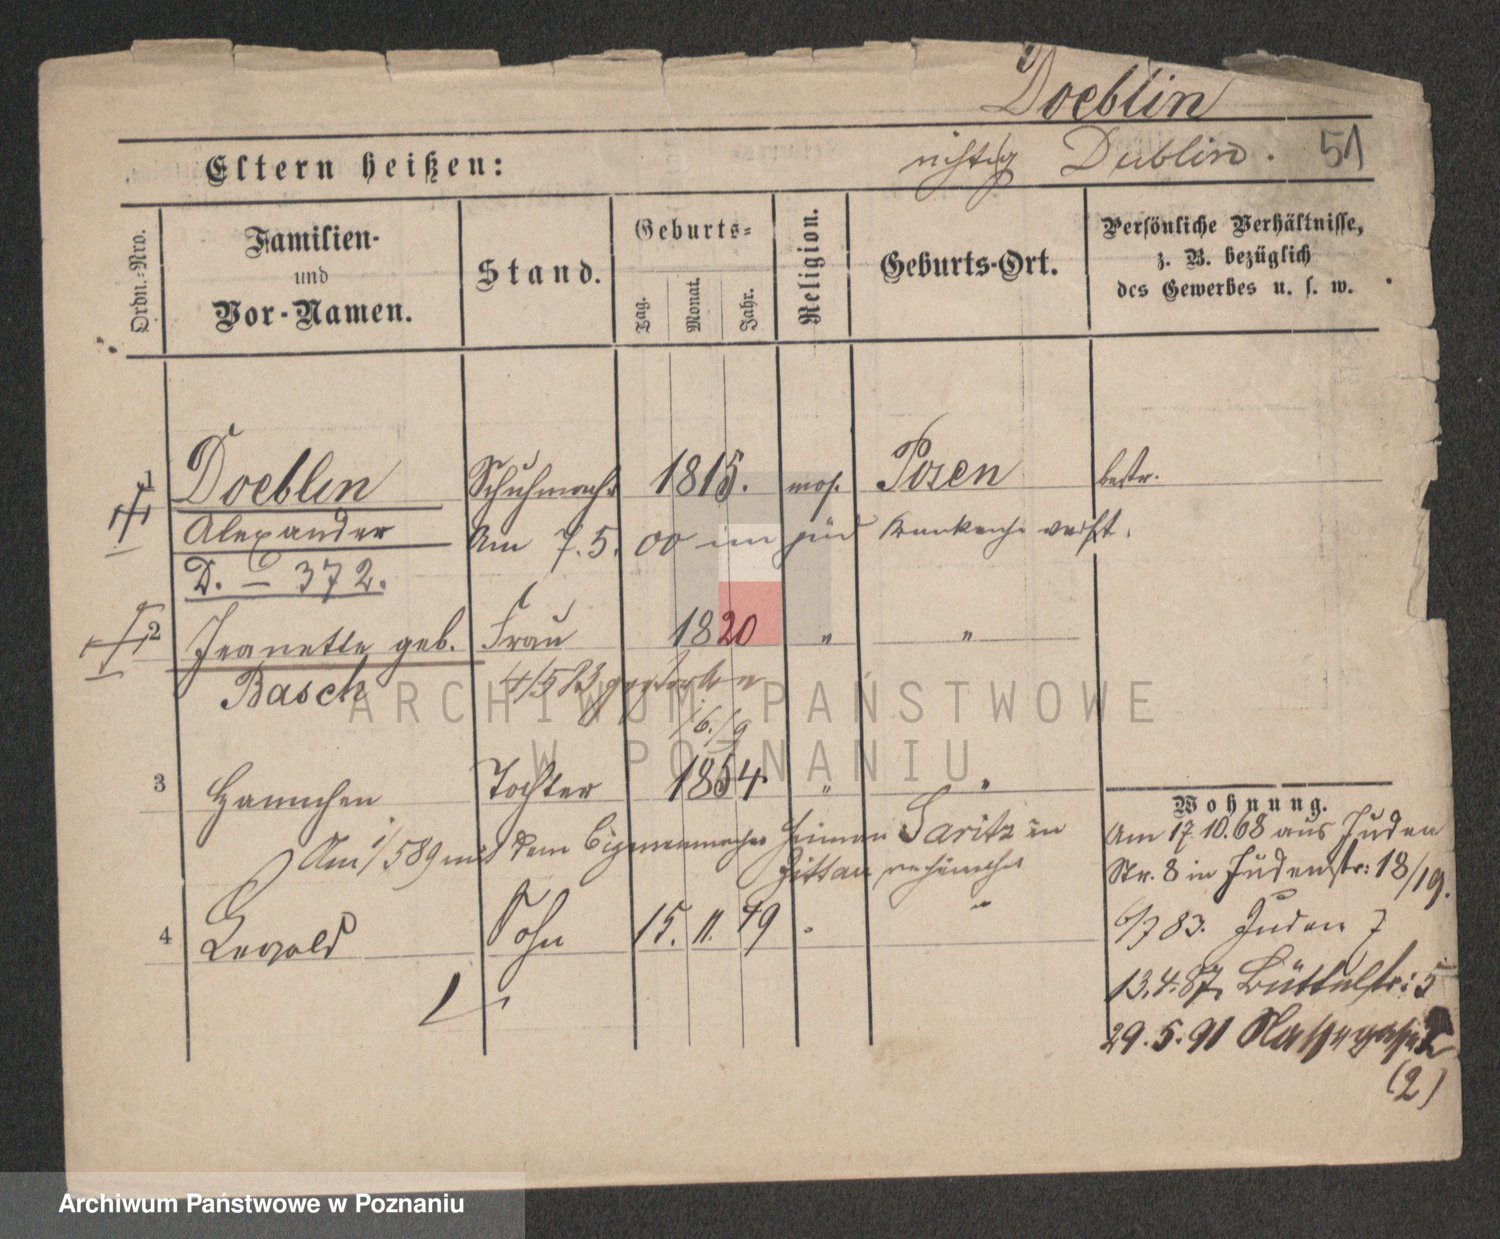 Doeblin
richtig Dublin. 51
Eltern heißen:
Ordn.-Nro.
Familien-
und
Vor-Namen.
Stand.
Geburts-
Tag.
Monat.
Jahr.
Religion.
Geburts-Ort.
Persönliche Verhältnisse,
z. B. bezüglich
des Gewerbes u. s. w.
1 Doeblin Schuhmachr 1815. mos. Posen bestr.
Alexander Am 7. 5. 00 im jüd Krankenh verst.
D. – 372.
2 Jeanette geb. Frau 1820 " "
Basch 4/5 83 gestorben
1/6./9
3 Hannchen Tochter 1854 " "
Am 1/5 89 mit dem Cigarrenmacher Heiman Saritz in
Zittau verheirathet
4 Leopold Sohn 15. 11. 49 " "
Wohnung.
Am 17.10.68 aus Juden
Str. 8 in Judenstr: 18/19.
6/7 83. Juden 7
13.4.87. Büttelstr: 5
29.5.91 Nassegasse 2
(2)
ARCHIWUM PAŃSTWOWE
W POZNANIU
Archiwum Państwowe w Poznaniu